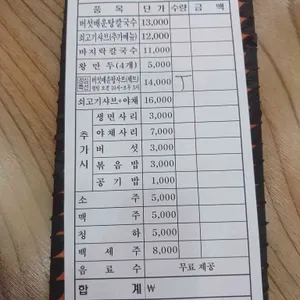 품 목 단 가 수량 금 액
버섯매운탕칼국수 13,000
쇠고기샤브(추가메뉴) 12,000
바지락칼국수 11,000
왕 만 두(4개) 5,000
버섯매운탕샤브(세트) 14,000
평일 오픈
쇠고기샤브+야채 16,000
추가시
생면사리 3,000
야채사리 7,000
버 섯 3,000
볶음밥 3,000
공기밥 1,000
소 주 5,000
맥 주 5,000
청 하 5,000
백 세 주 8,000
음 료 수 무료 제공
합 계 ₩